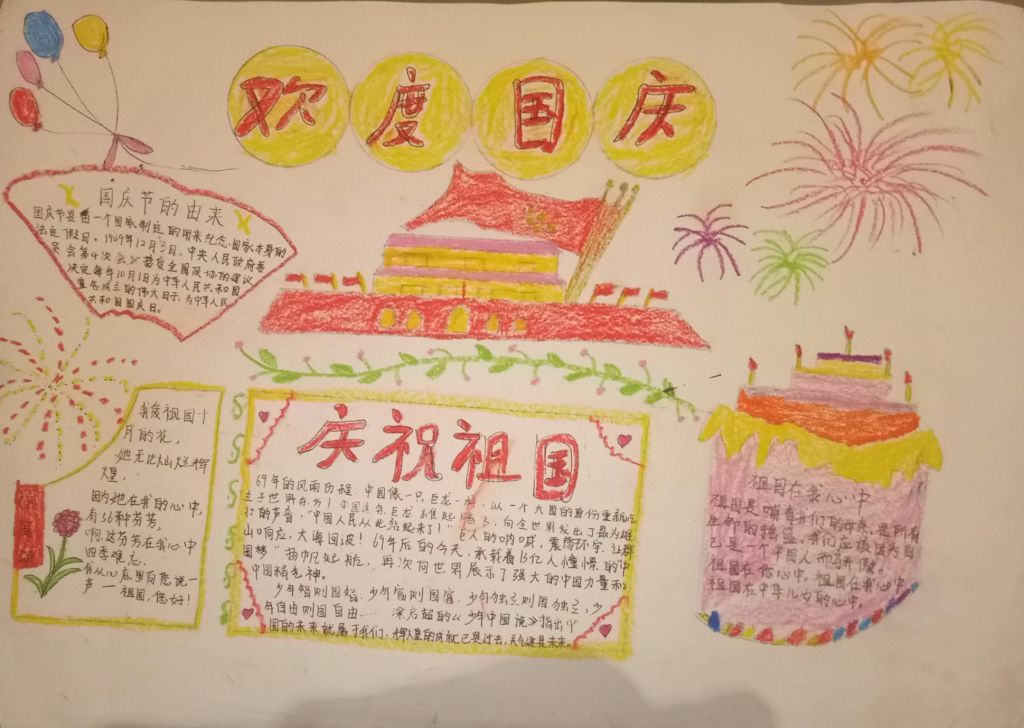 欢度国庆
国庆节的由来
国庆节是由一个国家制定的用来纪念国家本身的
法定假日。1949年12月2日,中央人民政府委
员会第4次会议接受全国政协的建议
决定每年10月1日为中华人民共和国
宣告成立的伟大日子,为中华人民
共和国国庆日。
我爱祖国十
月的花,
她无比灿烂辉
煌,
因为她在我的心中,
有56种芳芳,
啊,这芳芳在我心中
四季难忘,
我从心底里向您说一
声一祖国,您好!
庆祝祖国
69年的风雨历程,中国像一只巨龙一样,以一个大国的身份重新屹
立于世界东方!中国这条巨龙
壮的声音,“中国人民从此站起来了!”巨人的呐喊,震荡环宇,让群
山响应,大海回波!69年后的今天,承载着13亿人憧憬的“中
国梦”扬帆起航,再次向世界展示了强大的中国力量和
中国精气神。
少年智则国智,少年富则国富,少年独立则国独立,少
年自由则国自由……梁启超的《少年中国说》指出中
国的未来就属于我们,辉煌的成就已是过去,关键是未来。
祖国在我心中
祖国是哺育我们的母亲,是所有
生命的摇篮,我们应该因为自
己是一个中国人而骄傲。
祖国在你心中,祖国在我心中
祖国在中华儿女的心中。